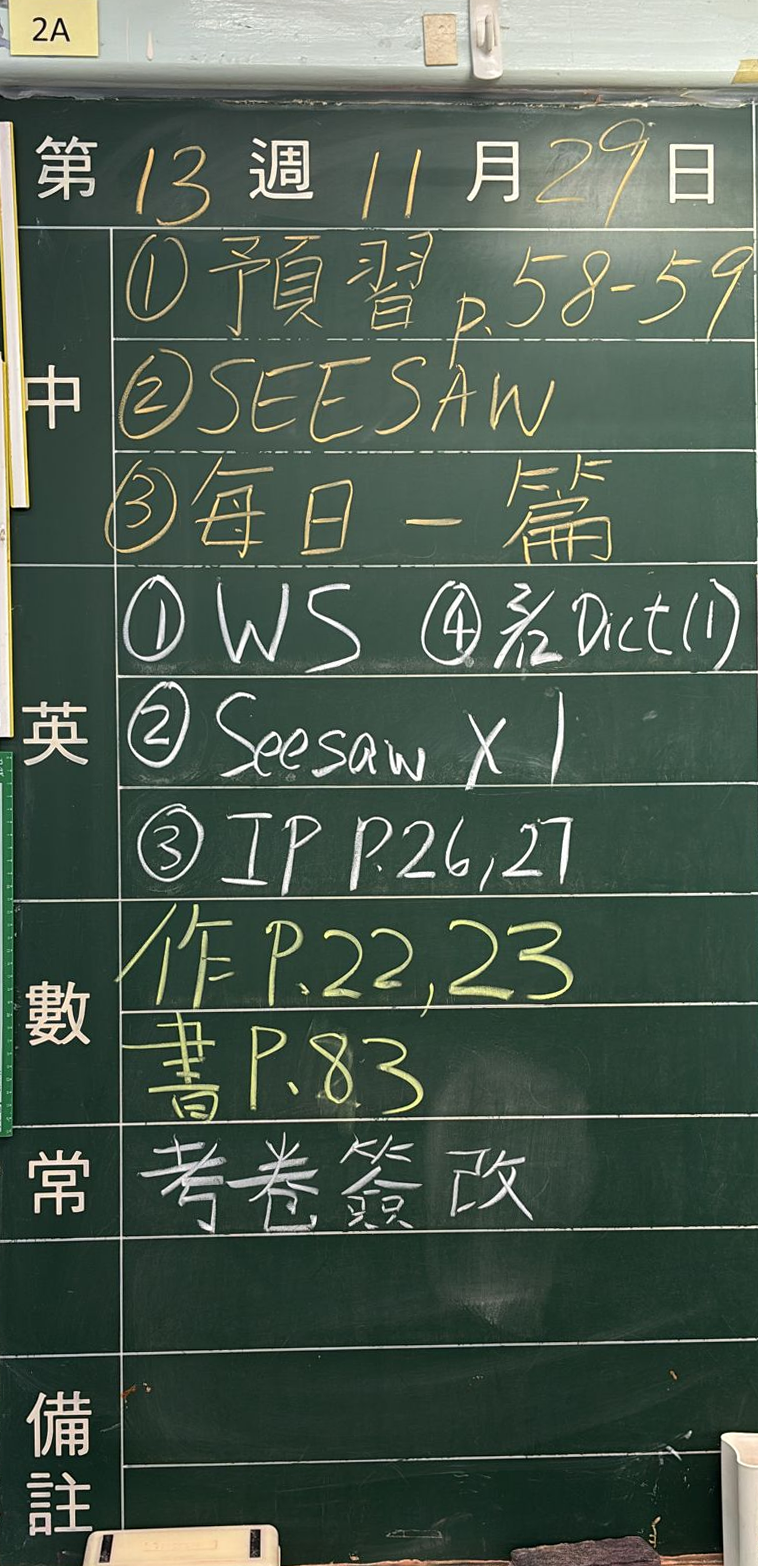 2A
第 13 週 11 月 29 日
中
① 預習 p.58-59
② SEESAW
③ 每日一篇
英
① WS ④ Dict(1)
② Seesaw X 1
③ IP P.26,27
數
作 P.22,23
書 P.83
常
考卷簽改
備註